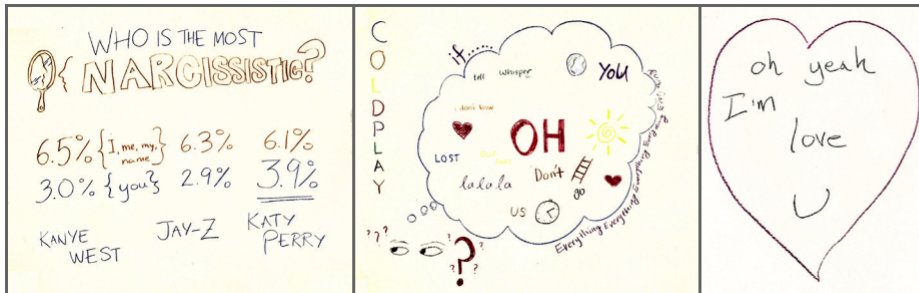 WHO IS THE MOST
NARCISSISTIC?
6.5% {I, me, my, name} 6.3% 6.1%
3.0% {you} 2.9% 3.9%
KANYE WEST JAY-Z KATY PERRY
COLDPLAY
if.....
tell whisper YOU
i don't know
OH
LOST
la la la Don't
go
US
Everything Everything Everything
? ? ? ? ? ? ?
oh yeah
I'm
love
U